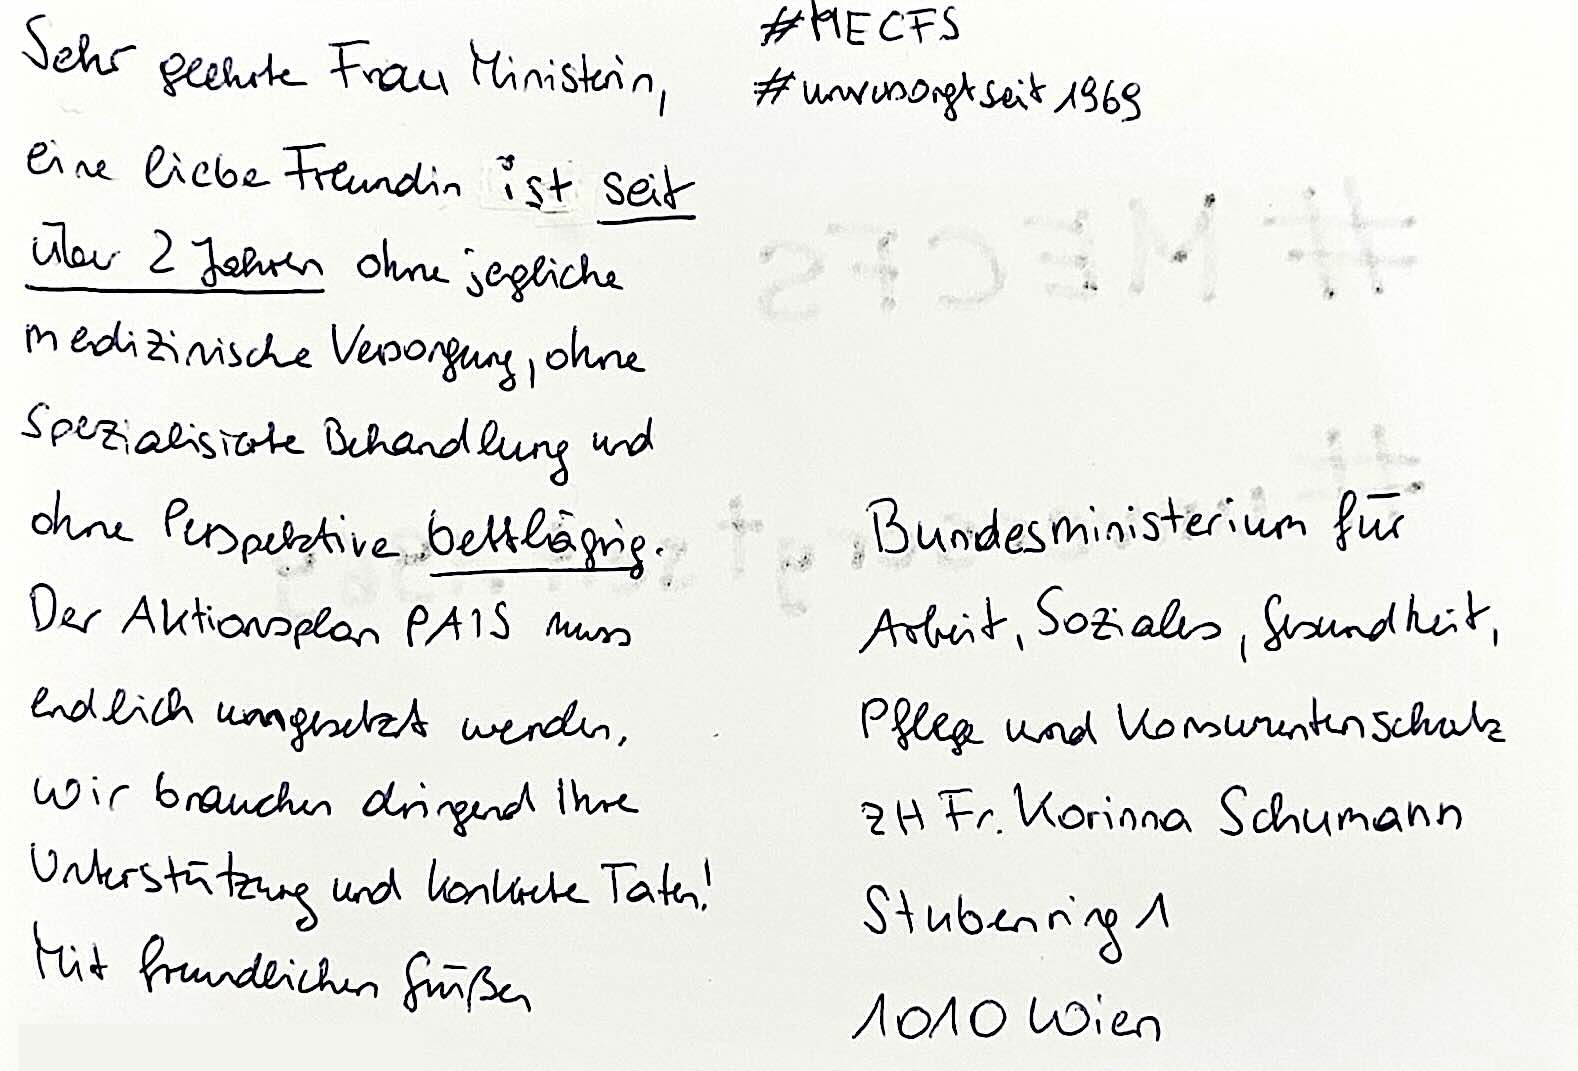 Sehr geehrte Frau Ministerin,
eine liebe Freundin ist seit
über 2 Jahren ohne jegliche
medizinische Versorgung, ohne
spezialisierte Behandlung und
ohne Perspektive bettlägrig.
Der Aktionsplan PAIS muss
endlich umgesetzt werden,
wir brauchen dringend Ihre
Unterstützung und konkrete Taten!
Mit freundlichen Grüßen
#MECFS
#unversorgtseit1969
Bundesministerium für
Arbeit, Soziales, Gesundheit,
Pflege und Konsumentenschutz
zH Fr. Korinna Schumann
Stubenring 1
1010 Wien